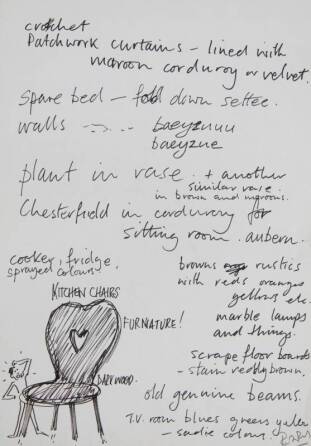 crotchet
Patchwork curtains - lined with
maroon corduroy or velvet.
spare bed - fold down settee.
walls
plant in vase. + another
similar vase.
in brown and maroons.
Chesterfield in corduroy for
sitting room. auborn.
cooker, fridge,
sprayed colours.
KITCHEN CHAIRS
FURNATURE!
DARK WOOD.
browns rustics
with reds oranges
yellows etc.
marble lamps
and things.
scrape floor boards
- stain reddy brown.
old genuine beams.
T.V. room blues greens
- sudie colours.